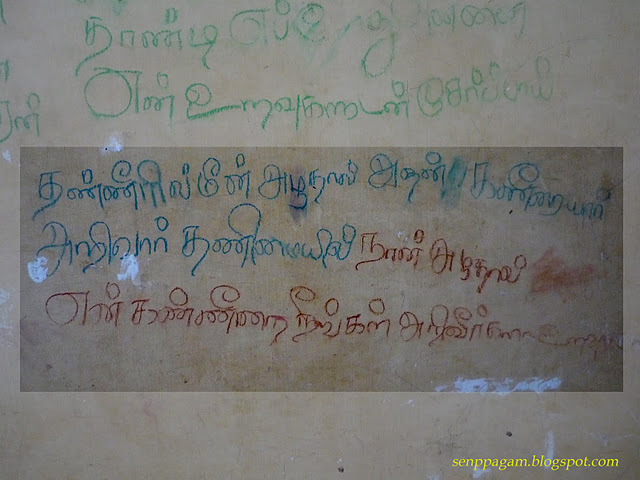 தாண்டி
என் உறவுகளுடன் சேர்ப்பாய்
தண்ணீரில் மீன் அழுதால் அதன் கண்ணீரை யார்
அறிவார் தணிமையில் நான் அழுதால்
என் கண்ணீரை நீங்கள் அறிவீர்களா
senppagam.blogspot.com